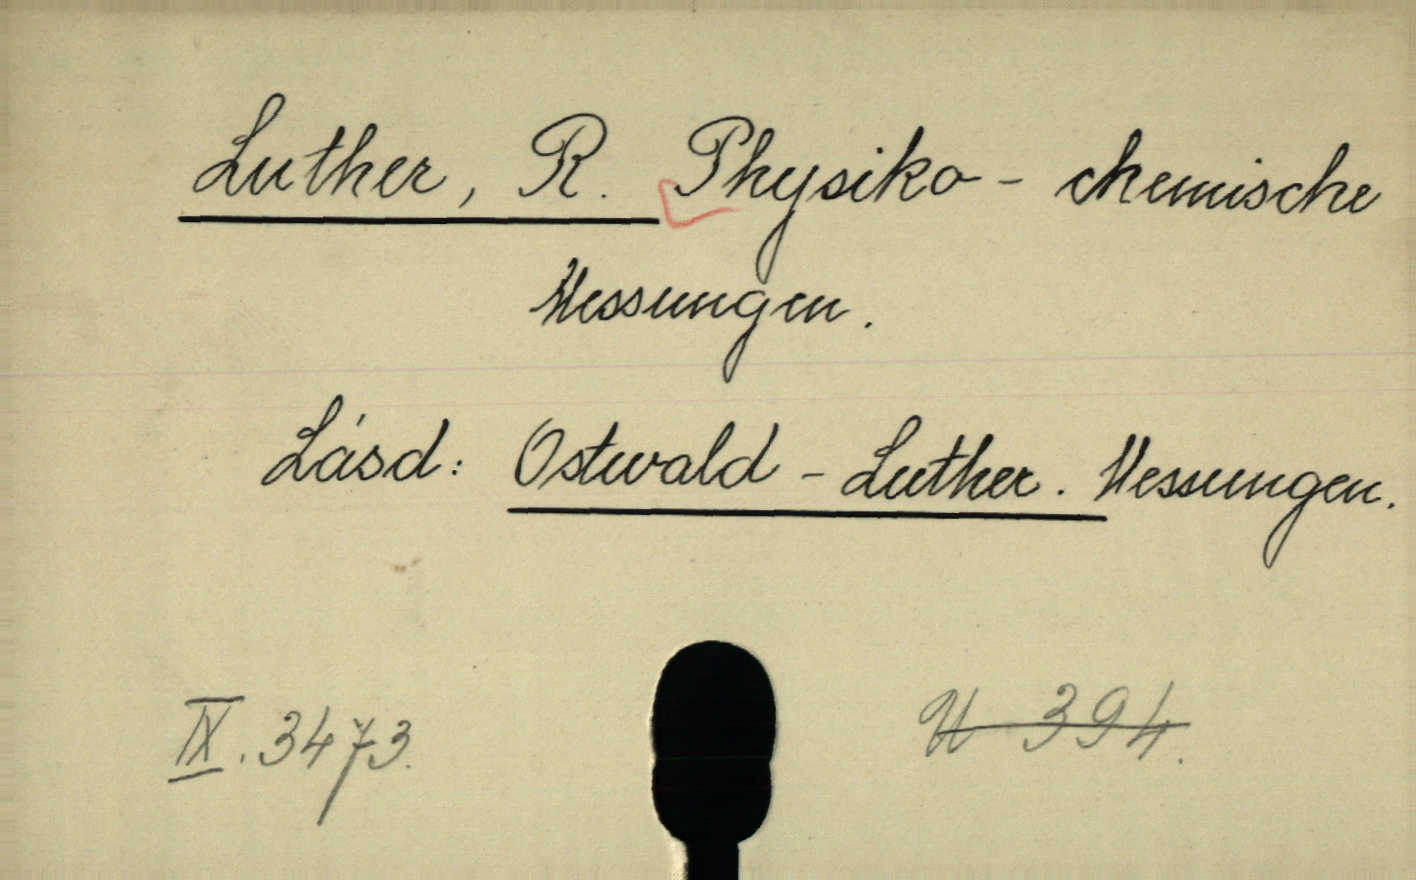 Luther, R. Physiko - chemische
Messungen.
Lásd: Ostwald - Luther. Messungen.
IX. 3473. U 394.